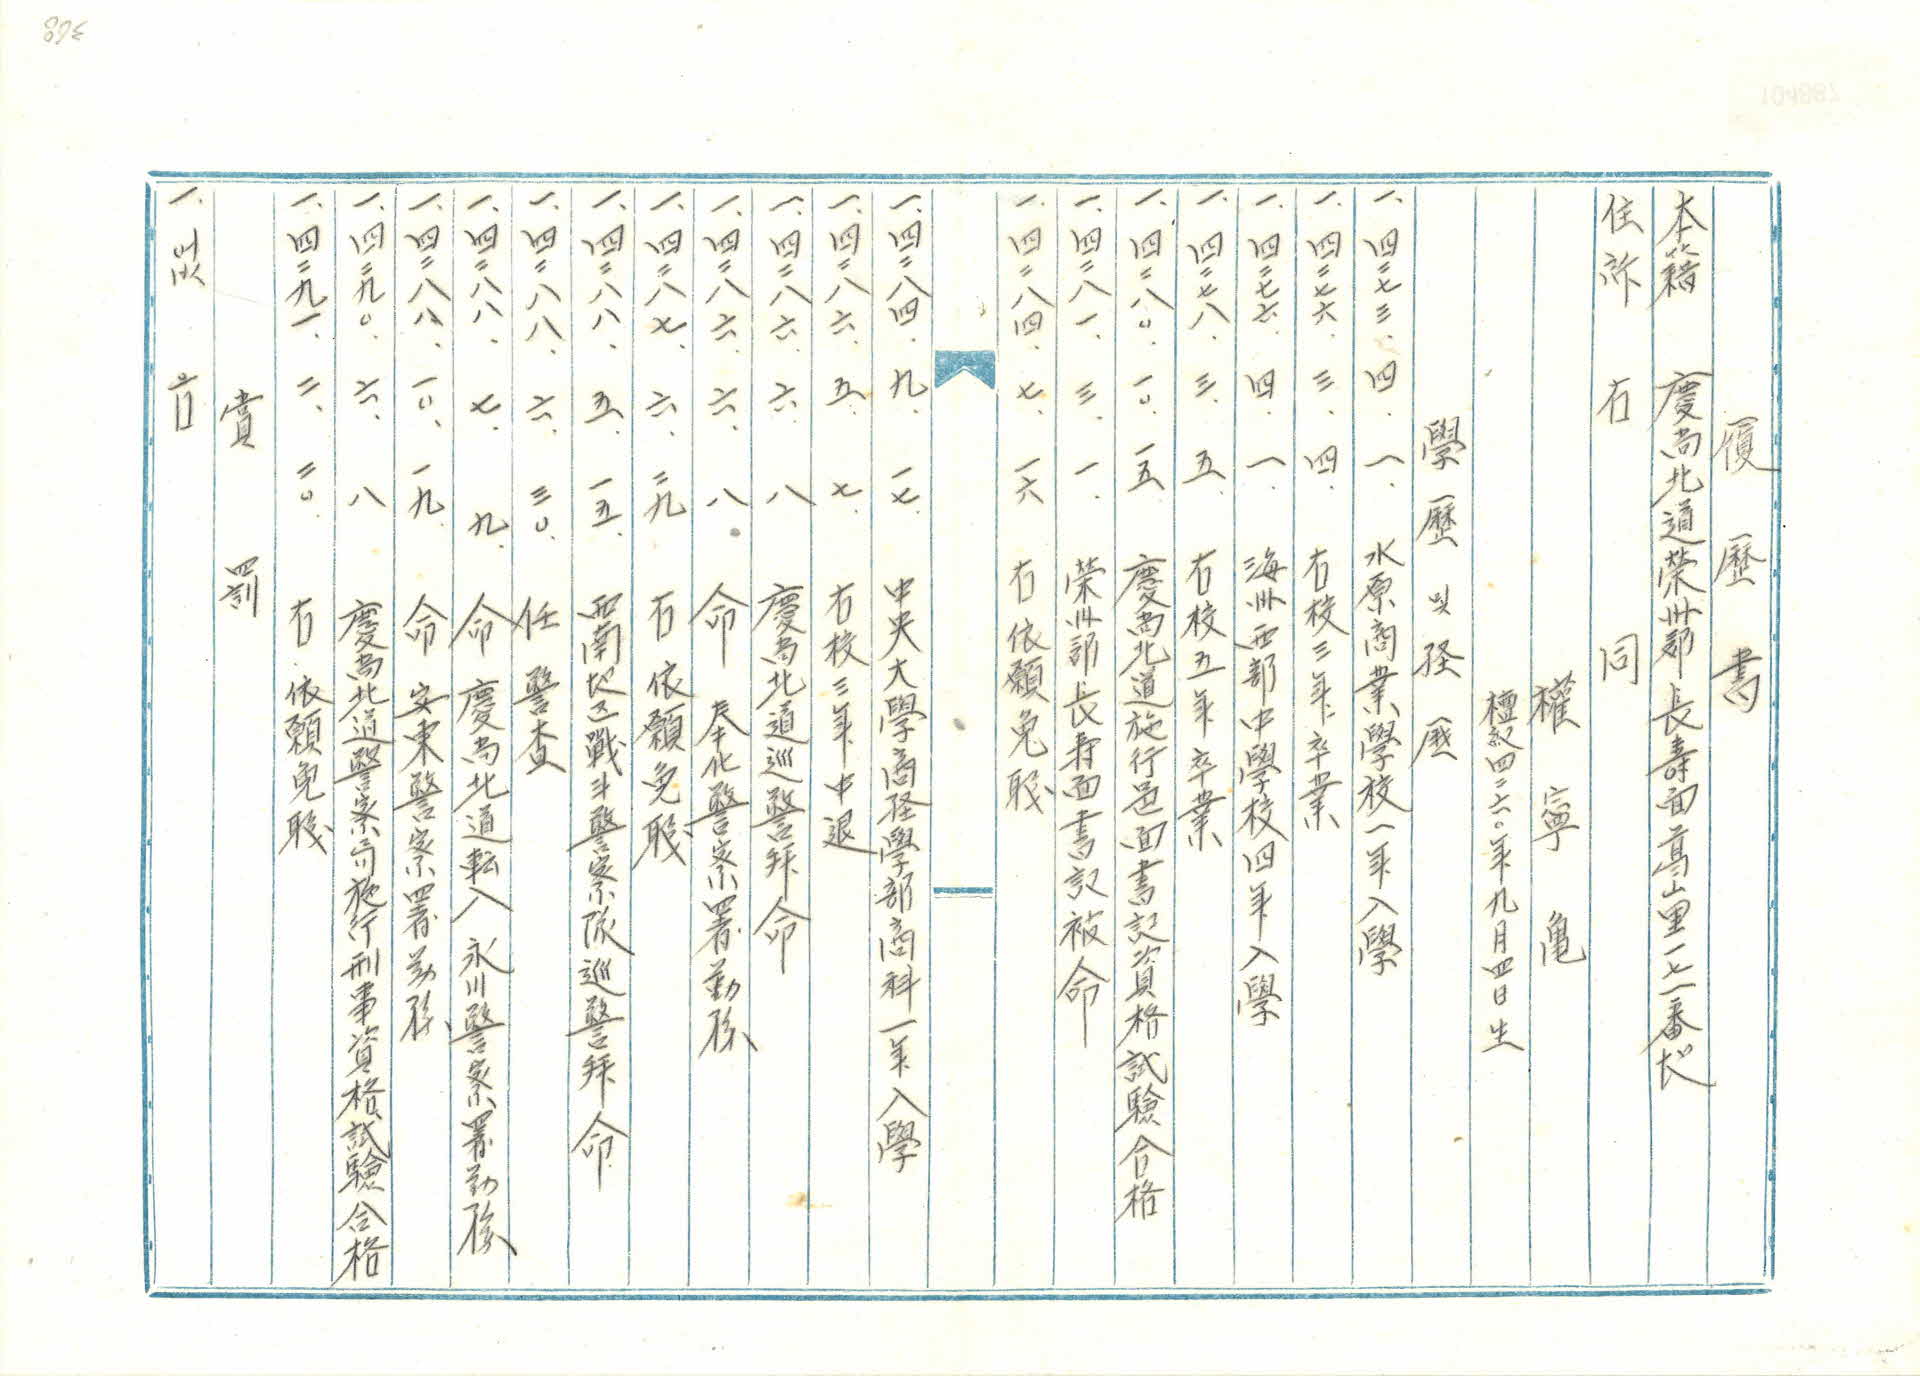 履歷書
本籍 慶尙北道榮州郡長壽面葛山里一七一番地
住所 右同
權寧龜
檀紀四二六〇年九月四日生
學歷 및 経歷
一. 四二七三. 四. 一. 水原商業學校一年入學
一. 四二七六. 三. 四. 右校三年卒業
一. 四二七六. 四. 一. 海州西部中學校四年入學
一. 四二七八. 三. 五. 右校五年卒業
一. 四二八〇. 一〇. 一五. 慶尙北道施行邑面書記資格試驗合格
一. 四二八一. 三. 一. 榮州郡長壽面書記被命
一. 四二八四. 七. 一六 右依願免職
一. 四二八四. 九. 一七. 中央大學商経學部商科一年入學
一. 四二八六. 五. 七 右校三年中退
一. 四二八六. 六. 八 慶尙北道巡警拜命
一. 四二八六. 六. 八 命 奉化警察署勤務
一. 四二八七. 六. 二九 右依願免職
一. 四二八八. 五. 一五. 西南地区戰斗警察隊巡警拜命
一. 四二八八. 六. 三〇. 任 警査
一. 四二八八. 七. 九. 命 慶尙北道転入 永川警察署勤務
一. 四二八八. 一〇. 一九. 命 安東警察署勤務
一. 四二九〇. 六. 八 慶尙北道警察局施行刑事資格試驗合格
一. 四二九一. 二. 二〇. 右依願免職
賞罰
一.
368